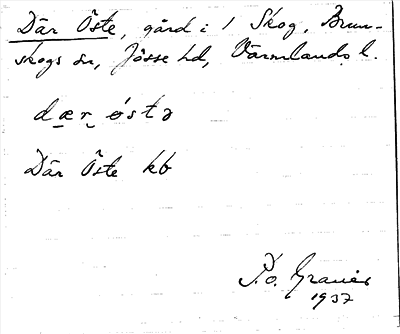 Där Öste, gård i 1 Skog, Brun-
skogs sn, Jösse hd, Värmlands l.
dær östə
Där Öste kb
1937